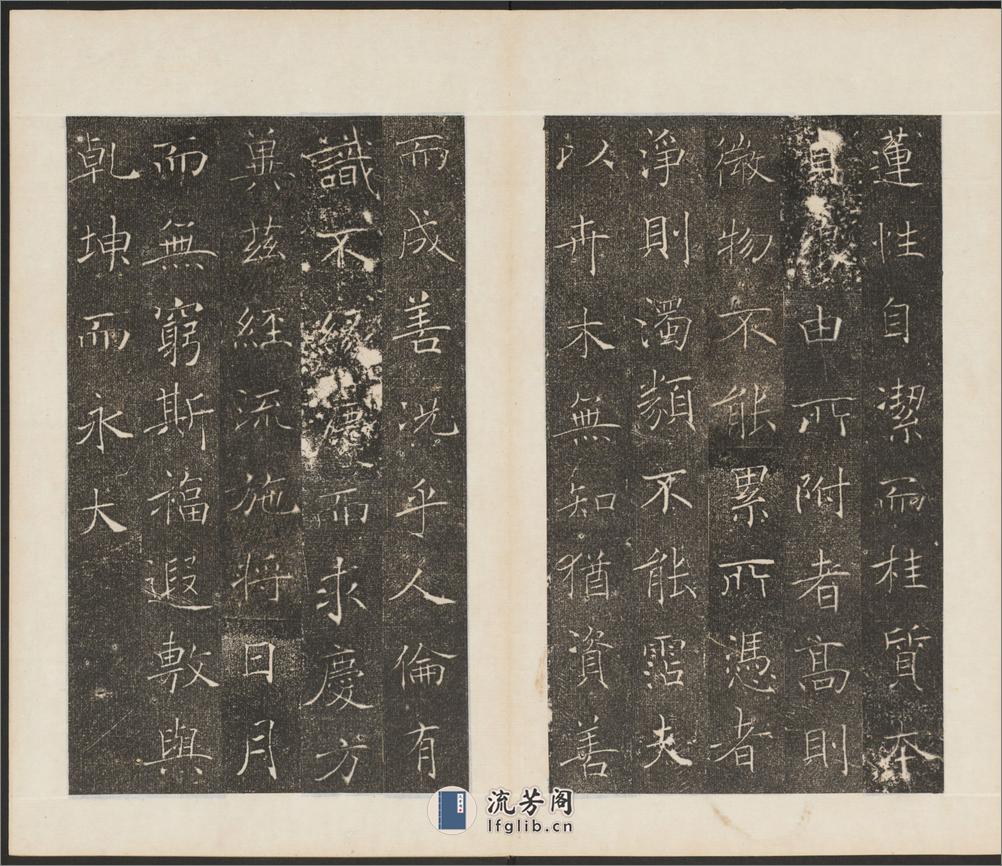 蓮性自潔而桂質本
貞由所附者高則
微物不能累所憑者
淨則濁類不能霑夫
以卉木無知猶資善
而成善況乎人倫有
識不緣慶而求慶方
冀茲經流施將日月
而無窮斯福遐敷與
乾坤而永大
流芳阁
lfglib.cn